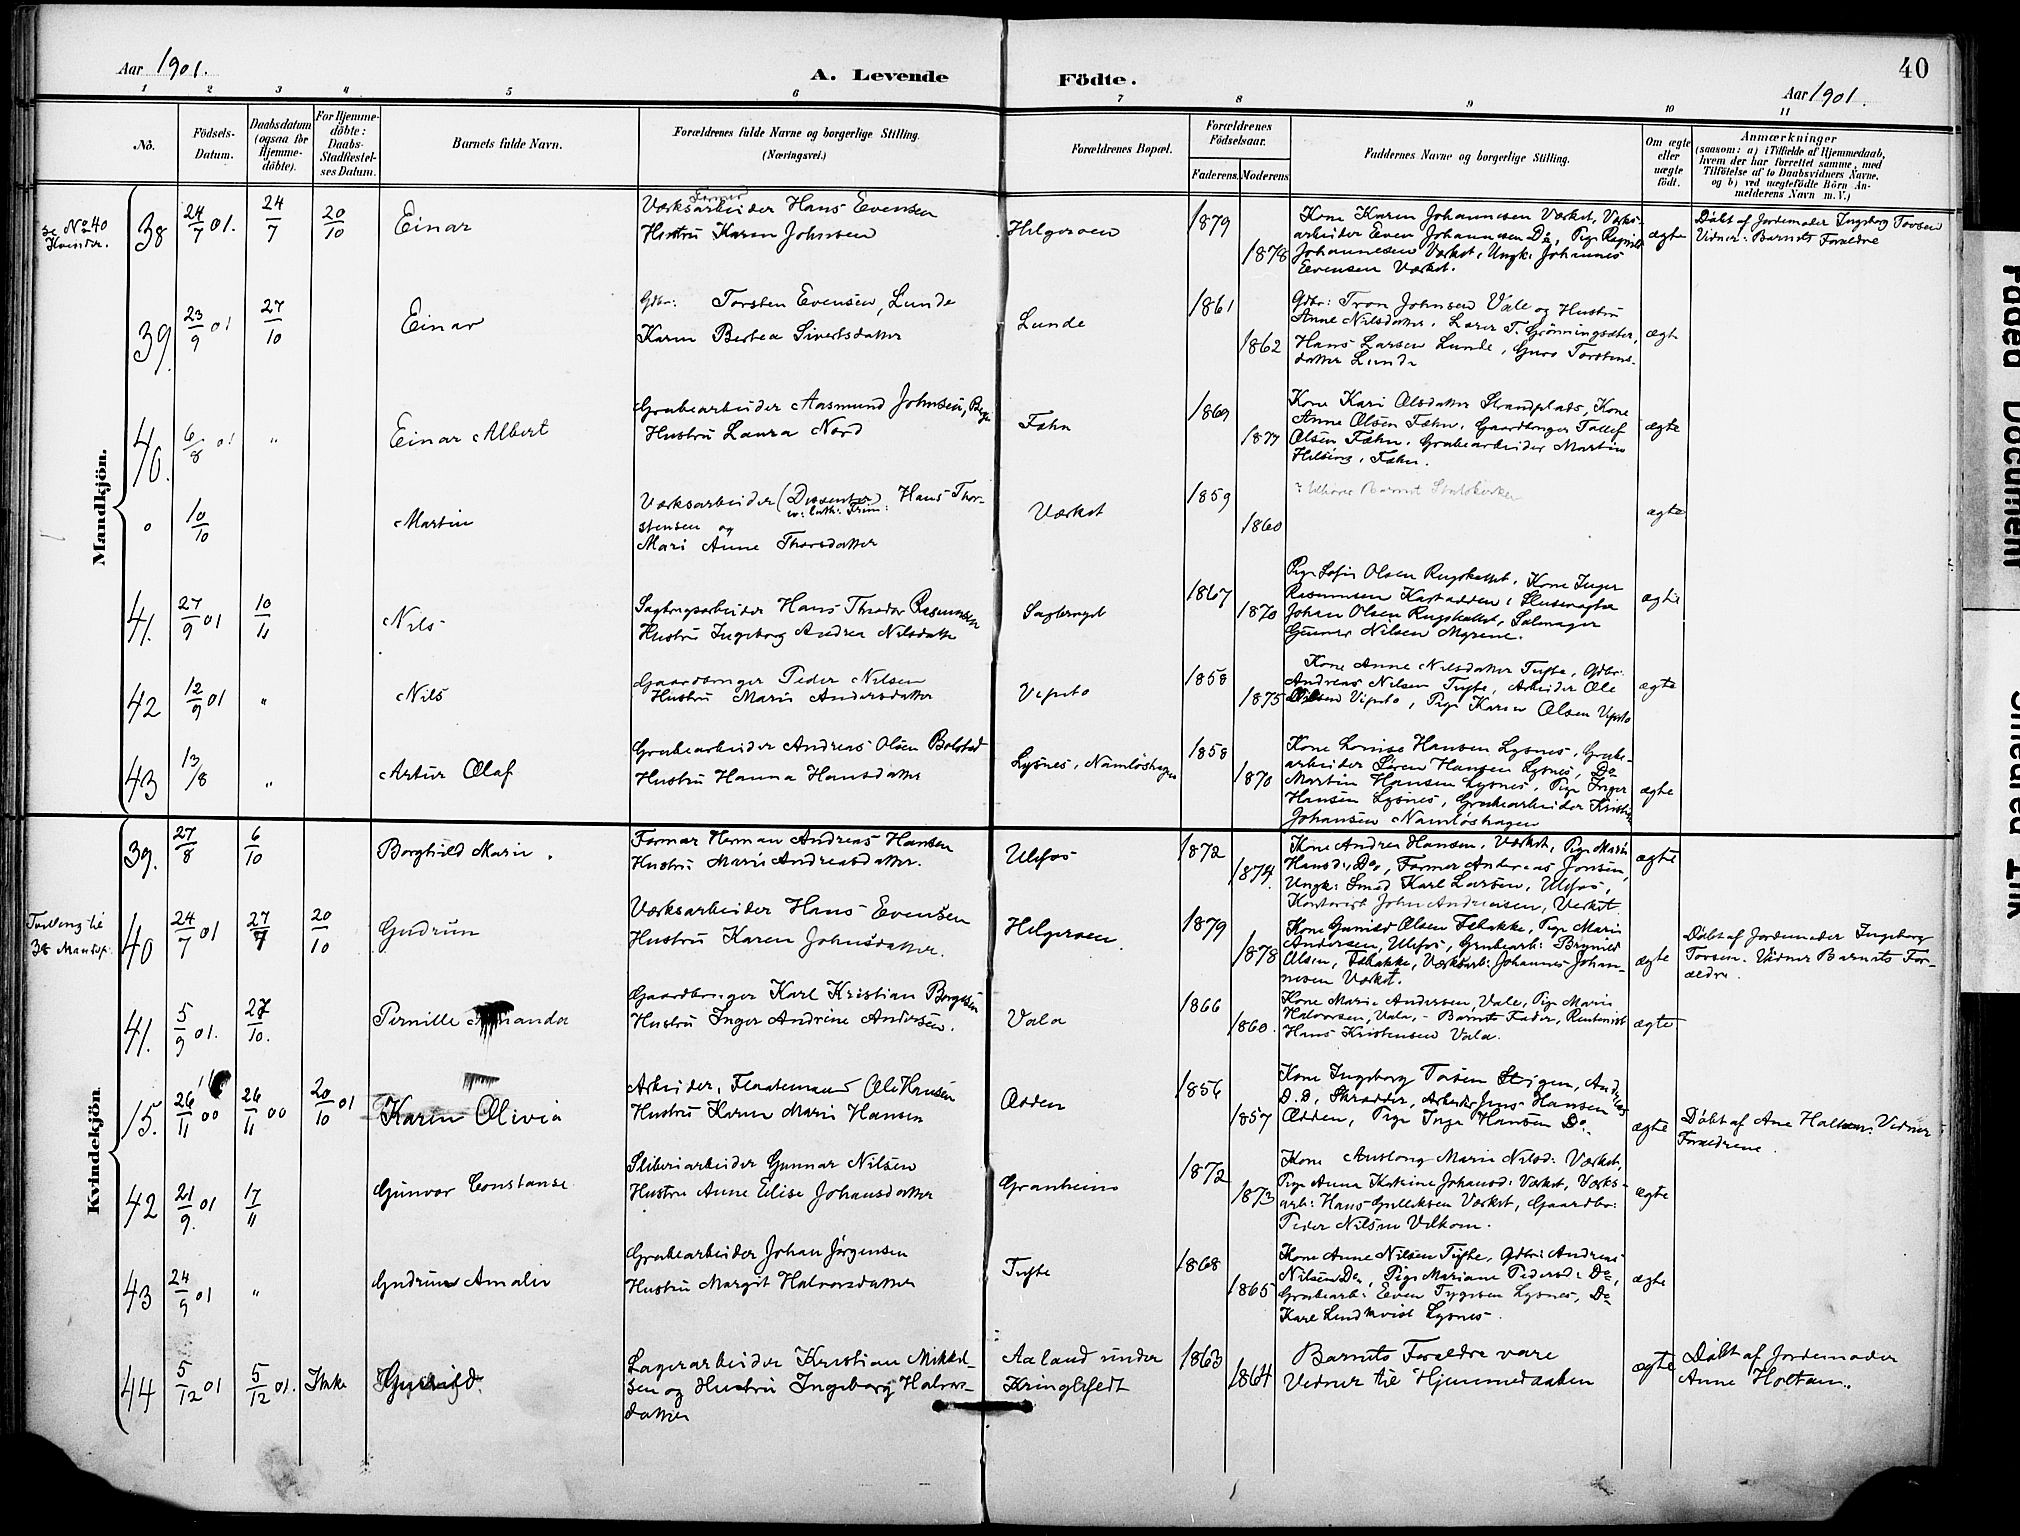 Aar 1901.
A. Levende Födte.
Aar 1901.
40
1 2 3 4 5 6 7 8 9 10 11
Nô.
Födsels-Datum.
Daabsdatum (ogsaa for Hjemme-döbte).
For Hjemme-döbte: Daabs-Stadfæstel-ses Datum.
Barnets fulde Navn.
Forældrenes fulde Navne og borgerlige Stilling.
(Næringsvei.)
Forældrenes Bopæl.
Forældrenes Födselsaar.
Faderens. Moderens.
Faddernes Navne og borgerlige Stilling.
Om ægte eller uægte födt.
Anmærkninger
(saasom: a) i Tilfælde af Hjemmedaab,
hvem der har forrettet samme, med
Tilföielse af to Daabsvidners Navne.
og b) ved uægtefödte Börn An-
melderens Navn m. V.)
Mandkjön.
se No 40 Kvinder.
38 24/7 01. 24/7 20/10 Einar
Værksarbeider Hans Evensen
Hustru Karen Johnsen
Helgeroen 1879 1878
Kone Karen Johannesen Værket, Værks-
arbeider Even Johannesen Do, Pige
Johannesen Værket, Ungk: Johannes
Evensen Værket.
ægte
Døbt af Jordemoder Ingeborg Tovsen
Vidner: Barnets Forældre
39. 23/9 01 27/10 Einar
Gdbr: Torsten Evensen, Lunde
Karen Bertea Sivertsdatter
Lunde 1861 1862
Gdbr: Tron Johnsen Vale og Hustru
Anne Nilsdatter, Lærer T. Grønningsæter,
Hans Larsen Lunde, Guro Torstens-
datter Lunde
ægte
40. 6/8 01 " Einar Albert
Grubearbeider Aasmund Johnsen,
Hustru Laura Nord
Fæhn 1869 1877
Kone Kari Olsdatter Strandplads, Kone
Anne Olsen Fæhn, Gaardbruger Tollef
Olsen Fæhn, Grubearbeider Martin
Fæhn.
ægte
o 10/10 Martin
Værksarbeider (Dissenter) Hans Thor-
ev: luth: Frim:
stensen og
Mari Anne Thorsdatter
Værket 1859 1860
ægte
41. 27/9 01 10/11 Nils
Sagbrugsarbeider Hans Theodor Rasmussen
Hustru Ingeborg Andrea Nilsdatter
Sagbruget 1867 1870
Pige Sofie Olsen, Kone Inger
Rasmussen
Johan Olsen, Salmager
Gunner Nilsen Myrene.
ægte
42 12/9 01 " Nils
Gaardbruger Peder Nilsen
Hustru Maria Andersdatter
Vipeto 1858 1875
Kone Anne Nilsdatter Tufte, Gdbr.
Andreas Nilsen Tufte, Arbeider Ole
Nilsen Vipeto, Pige Karen Olsen Vipeto
ægte
43 13/8 " Artur Olaf
Grubearbeider Andreas Olsen Bolstad
Hustru Hanna Hansdatter
Lysnes, Namløshagen 1858 1870
Kone Lovise Hansen Lysnes, Grube-
arbeider Søren Hansen Lysnes, Do
Martin Hansen Lysnes, Pige Inger
Hansen Lysnes, Grubearbeider Kristian
Johansen Namløshagen
ægte
Kvindekjön
39. 27/8 6/10 Borghild Marie.
Former Herman Andreas Hansen
Hustru Marie Andreasdatter.
Ulefos 1872 1874.
Kone Andrea Hansen, Værket, Pige Maria
Hansd:, Do, Former Andreas Jonsen,
Ungk: Smed Karl Larsen, Ulefos,
Kontorist John Andreasen, Værket.
ægte
Tvilling til 38 Mandkj.
40 24/7 01 27/7 20/10 Gudrun
Værksarbeider Hans Evensen
Hustru Karen Johnsdatter.
Helgeroen 1879 1878
Kone Gunild Olsen, Pige Maria
Andersen, Ulefos, Grubearb:
Olsen, Værksarb: Johannes Johan-
nesen Værket.
ægte
Døbt af Jordemoder Ingeborg
Tovsen. Vidner Barnets For-
ældre.
41. 5/9 01. 27/10. Pernille Amanda
Gaardbruger Karl Kristian Borgesen
Hustru Inger Andrine Andersen.
Vala 1866 1860.
Kone Maria Andersen, Vale, Pige Maria
Halvorsen, Vala, - Barnets Fader, Rentenist
Hans Kristensen Vala.
ægte
15. 26/11 00 26/11 00 20/10 01 Karen Olivia
Arbeider, Flaatemand Ole Hansen
Hustru Karen Maria Hansen
Odden 1856 1857
Kone Ingeborg Tovsen Stigen, Andreas
D.D, Skrædder, Arbeider Jens Hansen
Odden, Pige Inga Hansen Do.
ægte
Døbt af Ane Holtan. Vidner
Forældrene.
42 21/9. 01 17/11 Gunvor Constanse
Sliberiarbeider Gunnar Nilsen
Hustru Anne Elise Johansdatter
Granheim 1872 1873
Kone Anslaug Marie Nilsd: Værket,
Pige Anna Kristine Johansd: Værket, Værks-
arb: Hans Gulliksen Værket, Gaardbr:
Peder Nilsen Velkom.
ægte
43 24/9 01 " Gudrun Amalie
Grubearbeider Johan Jørgensen
Hustru Margit Halvorsdatter
Tufte 1868 1865
Kone Anne Nilsen Tufte, Gdbr: Andreas
Nilsen Do, Pige Mariane Pedersd: Do,
Grubearb: Even Lysnes, Do
Karl Lindkvist Lysnes.
ægte
44 5/12 01 5/12 01. Ikke Gunhild.
Lagerarbeider Kristian Mikkel-
sen og Hustru Ingeborg Halvors-
datter
Aaland under
Kringlefedt
1863 1864
Barnets Forældre vare
Vidner til Hjemmedaaben
ægte
Døbt af Jordemoder
Anne Holtan.
Faded Document